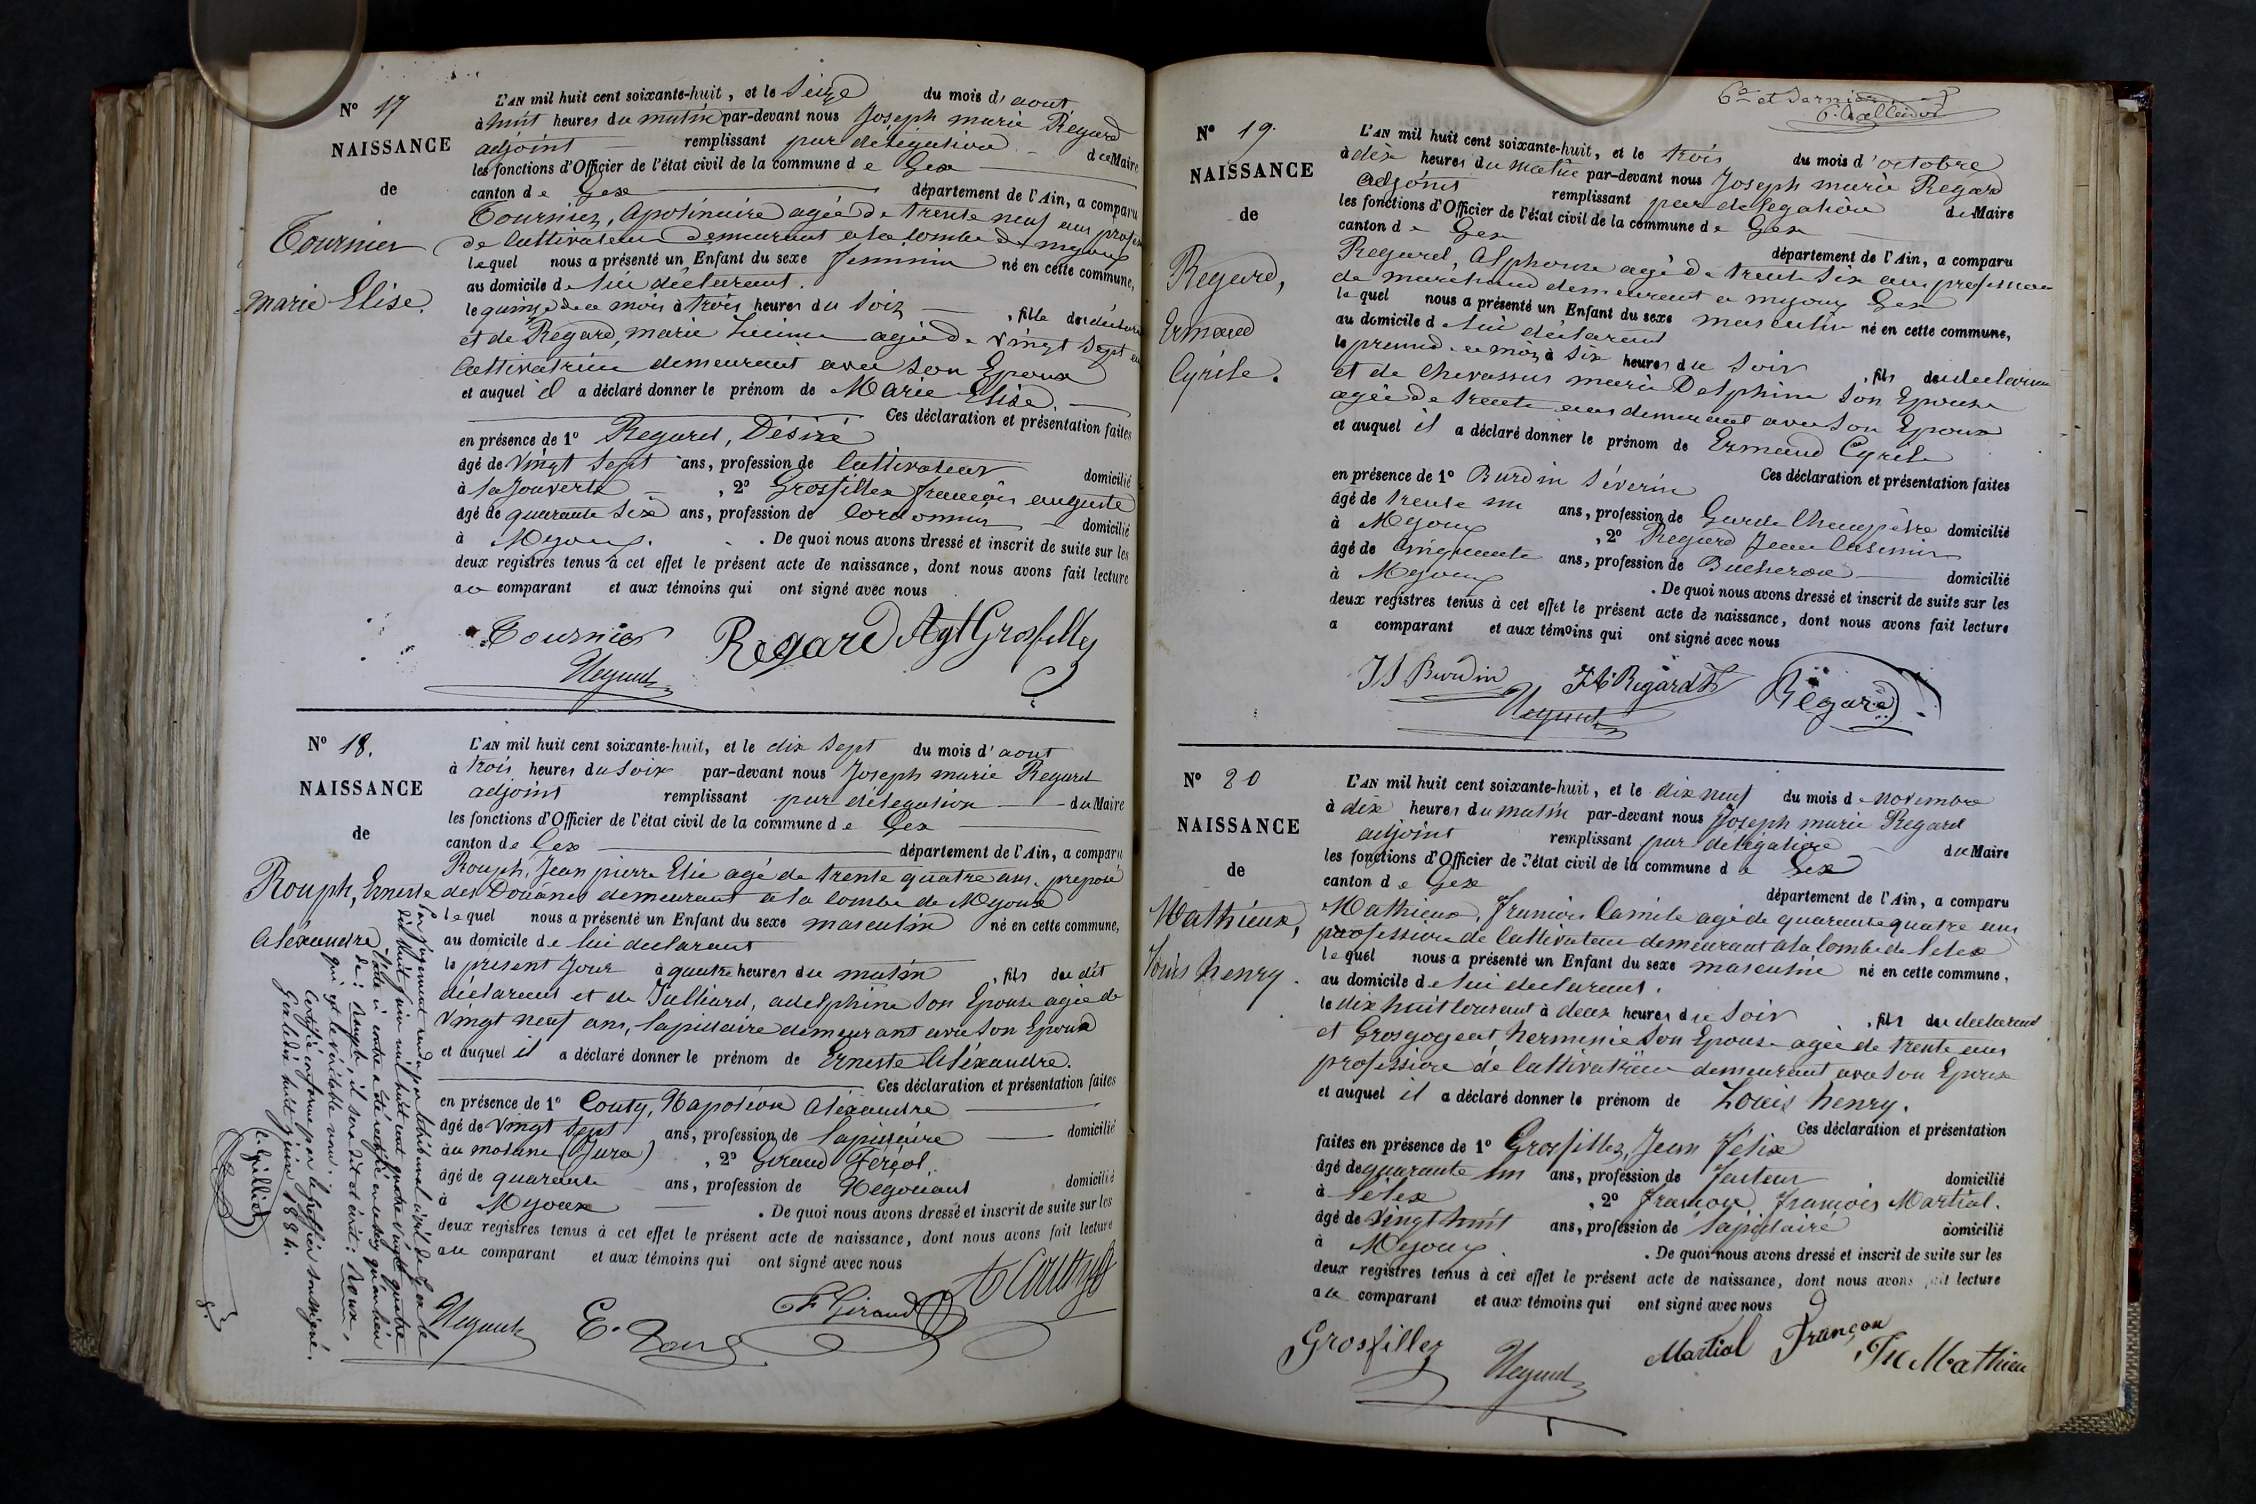 N° 17
NAISSANCE
de
Tournier
Marie Elise.
L'AN mil huit cent soixante-huit, et le Seize du mois d'aout
à huit heures du matin par-devant nous Joseph marie Regard
adjoint remplissant par délégation du Maire
les fonctions d'Officier de l'état civil de la commune de Gex
canton de Gex département de l'Ain, a comparu
Tournier, Apolinaire agé de trente neuf ans profession
de Cultivateur demeurant a la combe de myoux
lequel nous a présenté un Enfant du sexe feminin né en cette commune,
au domicile de lui déclarant.
le quinze de ce mois à trois heures du Soir, fille du déclarant
et de Regard, marie agée de vingt sept ans
Cultivatrice demeurant avec son Epoux
et auquel il a déclaré donner le prénom de Marie Elise.
Ces déclaration et présentation faites
en présence de 1° Regard, Désiré
âgé de vingt sept ans, profession de Cultivateur domicilié
à la , 2° Grosfillex françois auguste
âgé de quarante Six ans, profession de Cordonnier domicilié
à Myoux. De quoi nous avons dressé et inscrit de suite sur les
deux registres tenus à cet effet le présent acte de naissance, dont nous avons fait lecture
au comparant et aux témoins qui ont signé avec nous
Tournier Regard Agt Grosfillex
N° 18.
NAISSANCE
de
Rouph, Erneste
Aléxandre
L'AN mil huit cent soixante-huit, et le dix Sept du mois d'aout
à trois heures du Soir par-devant nous Joseph marie Regard
adjoint remplissant par délégation du Maire
les fonctions d'Officier de l'état civil de la commune de Gex
canton de Gex département de l'Ain, a comparu
Rouph, Jean pierre Elie agé de trente quatre ans. préposé
des Douânes demeurant a la combe de Myoux
lequel nous a présenté un Enfant du sexe masculin né en cette commune,
au domicile de lui declarant
le présent Jour à quatre heures du matin, fils du dit
déclarant et de Julliard, adelphine Son Epouse agée de
vingt neuf ans, lapidaire demeurant avec Son Epoux
et auquel il a déclaré donner le prénom de Erneste Aléxandre.
Ces déclaration et présentation faites
en présence de 1° Couty, Napoléon Aléxandre
âgé de vingt Sept ans, profession de lapidaire domicilié
à (Jura), 2° Giraud Feréol.
âgé de quarante ans, profession de Négociant domicilié
à Myoux. De quoi nous avons dressé et inscrit de suite sur les
deux registres tenus à cet effet le présent acte de naissance, dont nous avons fait lecture
au comparant et aux témoins qui ont signé avec nous
F. Giraud
Par jugement rendu par le tribunal civil de Gex le
dix huit juin mil huit cent quatre vingt quatre
l'acte ci contre a été rectifié en ce sens qu'au lieu
de: Rouph, il sera dit et écrit: Roux,
qui est le véritable nom.
Certifié conforme par le greffier soussigné.
Gex le dix huit juin 1884.
N° 19.
NAISSANCE
de
Regard,
Ermand
Cyrile.
6e et dernier
L'AN mil huit cent soixante-huit, et le trois du mois d'octobre
à dix heures du matin par-devant nous Joseph marie Regard
adjoint remplissant par délégation du Maire
les fonctions d'Officier de l'état civil de la commune de Gex
canton de Gex département de l'Ain, a comparu
Regard, Alphonse agé de trente Six ans profession
de maréchaud demeurant a myoux Gex
lequel nous a présenté un Enfant du sexe masculin né en cette commune,
au domicile de lui déclarant
le premier de ce mois à six heures du soir, fils du declarant
et de Chevassus marie Delphine Son Epouse
agée de trente ans demeurant avec son Epoux
et auquel il a déclaré donner le prénom de Ermand Cyrile
Ces déclaration et présentation faites
en présence de 1° Burdin Séverin
âgé de trente un ans, profession de Garde Champêtre domicilié
à Myoux, 2° Regard Jean Casimir
âgé de Cinquante ans, profession de Bucheron domicilié
à Myoux. De quoi nous avons dressé et inscrit de suite sur les
deux registres tenus à cet effet le présent acte de naissance, dont nous avons fait lecture
a comparant et aux témoins qui ont signé avec nous
J S Burdin JC Regard Regard
N° 20
NAISSANCE
de
Mathieux,
Louis henry.
L'AN mil huit cent soixante-huit, et le dix neuf du mois de novembre
à dix heures du matin par-devant nous Joseph marie Regard
adjoint remplissant par délégation du Maire
les fonctions d'Officier de l'état civil de la commune de Gex
canton de Gex département de l'Ain, a comparu
Mathieux, françois Camile agé de quarante quatre ans
profession de Cultivateur demeurant a la combe de lelex
lequel nous a présenté un Enfant du sexe masculin né en cette commune,
au domicile de lui declarant.
le dix huit courant à deux heures du Soir, fils du declarant
et Grosgogeat herminie Son Epouse agée de trente ans
profession de Cultivatrice demeurant avec son Epoux
et auquel il a déclaré donner le prénom de Louis henry.
Ces déclaration et présentation
faites en présence de 1° Grosfillex, Jean Félix
âgé de quarante un ans, profession de facteur domicilié
à lélex, 2° françon, françois Martial.
âgé de vingt huit ans, profession de lapidaire domicilié
à Myoux. De quoi nous avons dressé et inscrit de suite sur les
deux registres tenus à cet effet le présent acte de naissance, dont nous avons fait lecture
au comparant et aux témoins qui ont signé avec nous
Grosfillex Martial Françon Mathieu